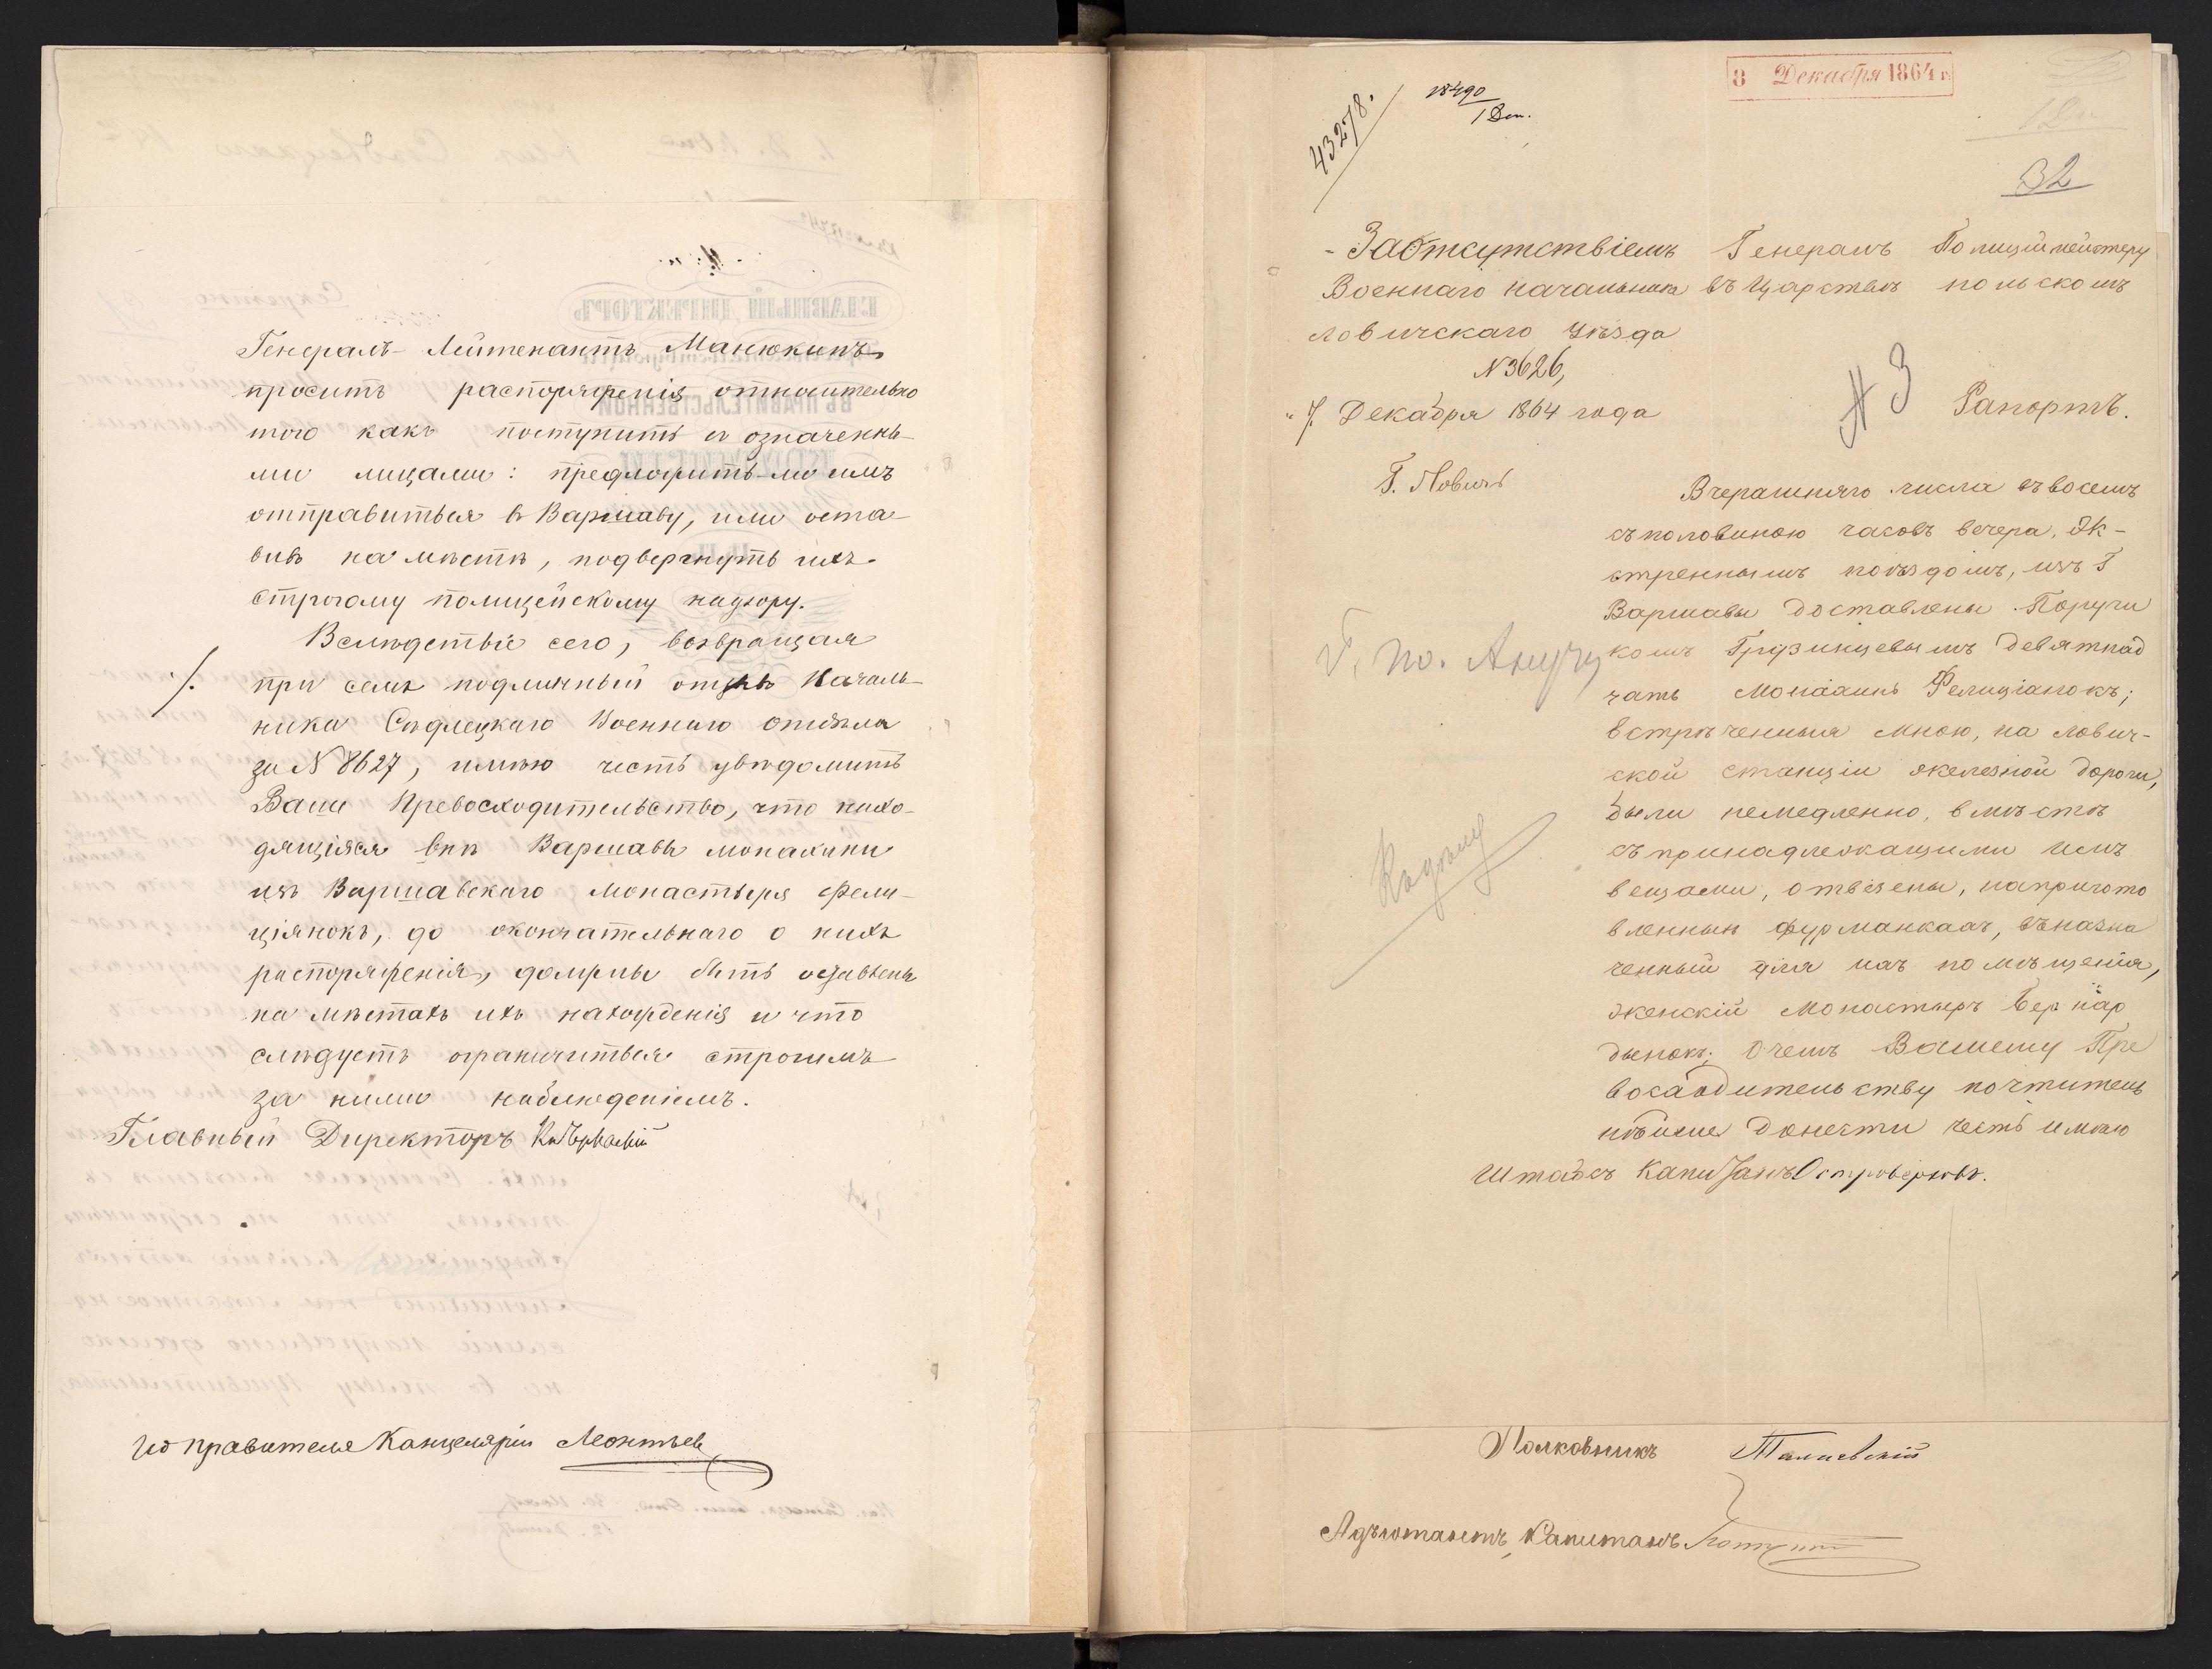 Генералъ-Лейтенантъ Манюкинъ
проситъ распоряженія относительно
того какъ поступить съ означенны-
ми лицами: предложить-ли имъ
отправиться въ Варшаву, или оста-
вивъ на мѣстѣ, подвергнуть ихъ
строгому полицейскому надзору.
Вслѣдствіе сего, возвращая
при семъ подлинный отзывъ Началь-
ника Сѣдлецкаго Военнаго отдѣла
за № 8627, имѣю честь увѣдомить
Ваше Превосходительство, что нахо-
дящіяся внѣ Варшавы монахини
изъ Варшавскаго монастыря Фели-
ціянокъ, до окончательнаго о нихъ
распоряженія, должны быть оставлены
на мѣстахъ ихъ нахожденія и что
слѣдуетъ ограничиться строгимъ
за ними наблюденіемъ.
Главный Директоръ
Ио Правителя Канцеляріи Леонтьевъ
8 Декабря 1864 г.
43278.
18490
1 Деп.
32
За отсутствіемъ
Военнаго начальника
Ловичскаго Уѣзда
№ 3626,
"7. Декабря 1864 года
Г. Ловичь
Генералъ Полиціймейстеру
въ Царствѣ польскомъ
№ 3
Рапортъ.
Вчерашняго числа въ восемъ
съ половиною часовъ вечера, Эк-
стреннымъ поѣздомъ, изъ Г
Варшавы доставлены Поручи
комъ Грузинцевымъ девятнад
чать Монахинь Фелиціанокъ;
встрѣченныя мною, на лович-
ской станціи железной дороги,
были немедленно, вмѣстѣ
съ принадлежащими имъ
вещами, отвезены, на пригото
вленнын фурманкахъ, въ назна
ченный для ихъ помѣщенія,
женскій Монастырь Бернар
дынокъ; О чемъ Вашему Пре
восходительству почтитель
нѣйше донести честь имѣю
Штабсъ Капитанъ Островерховъ.
Полковникъ
Адъютантъ, Капитанъ